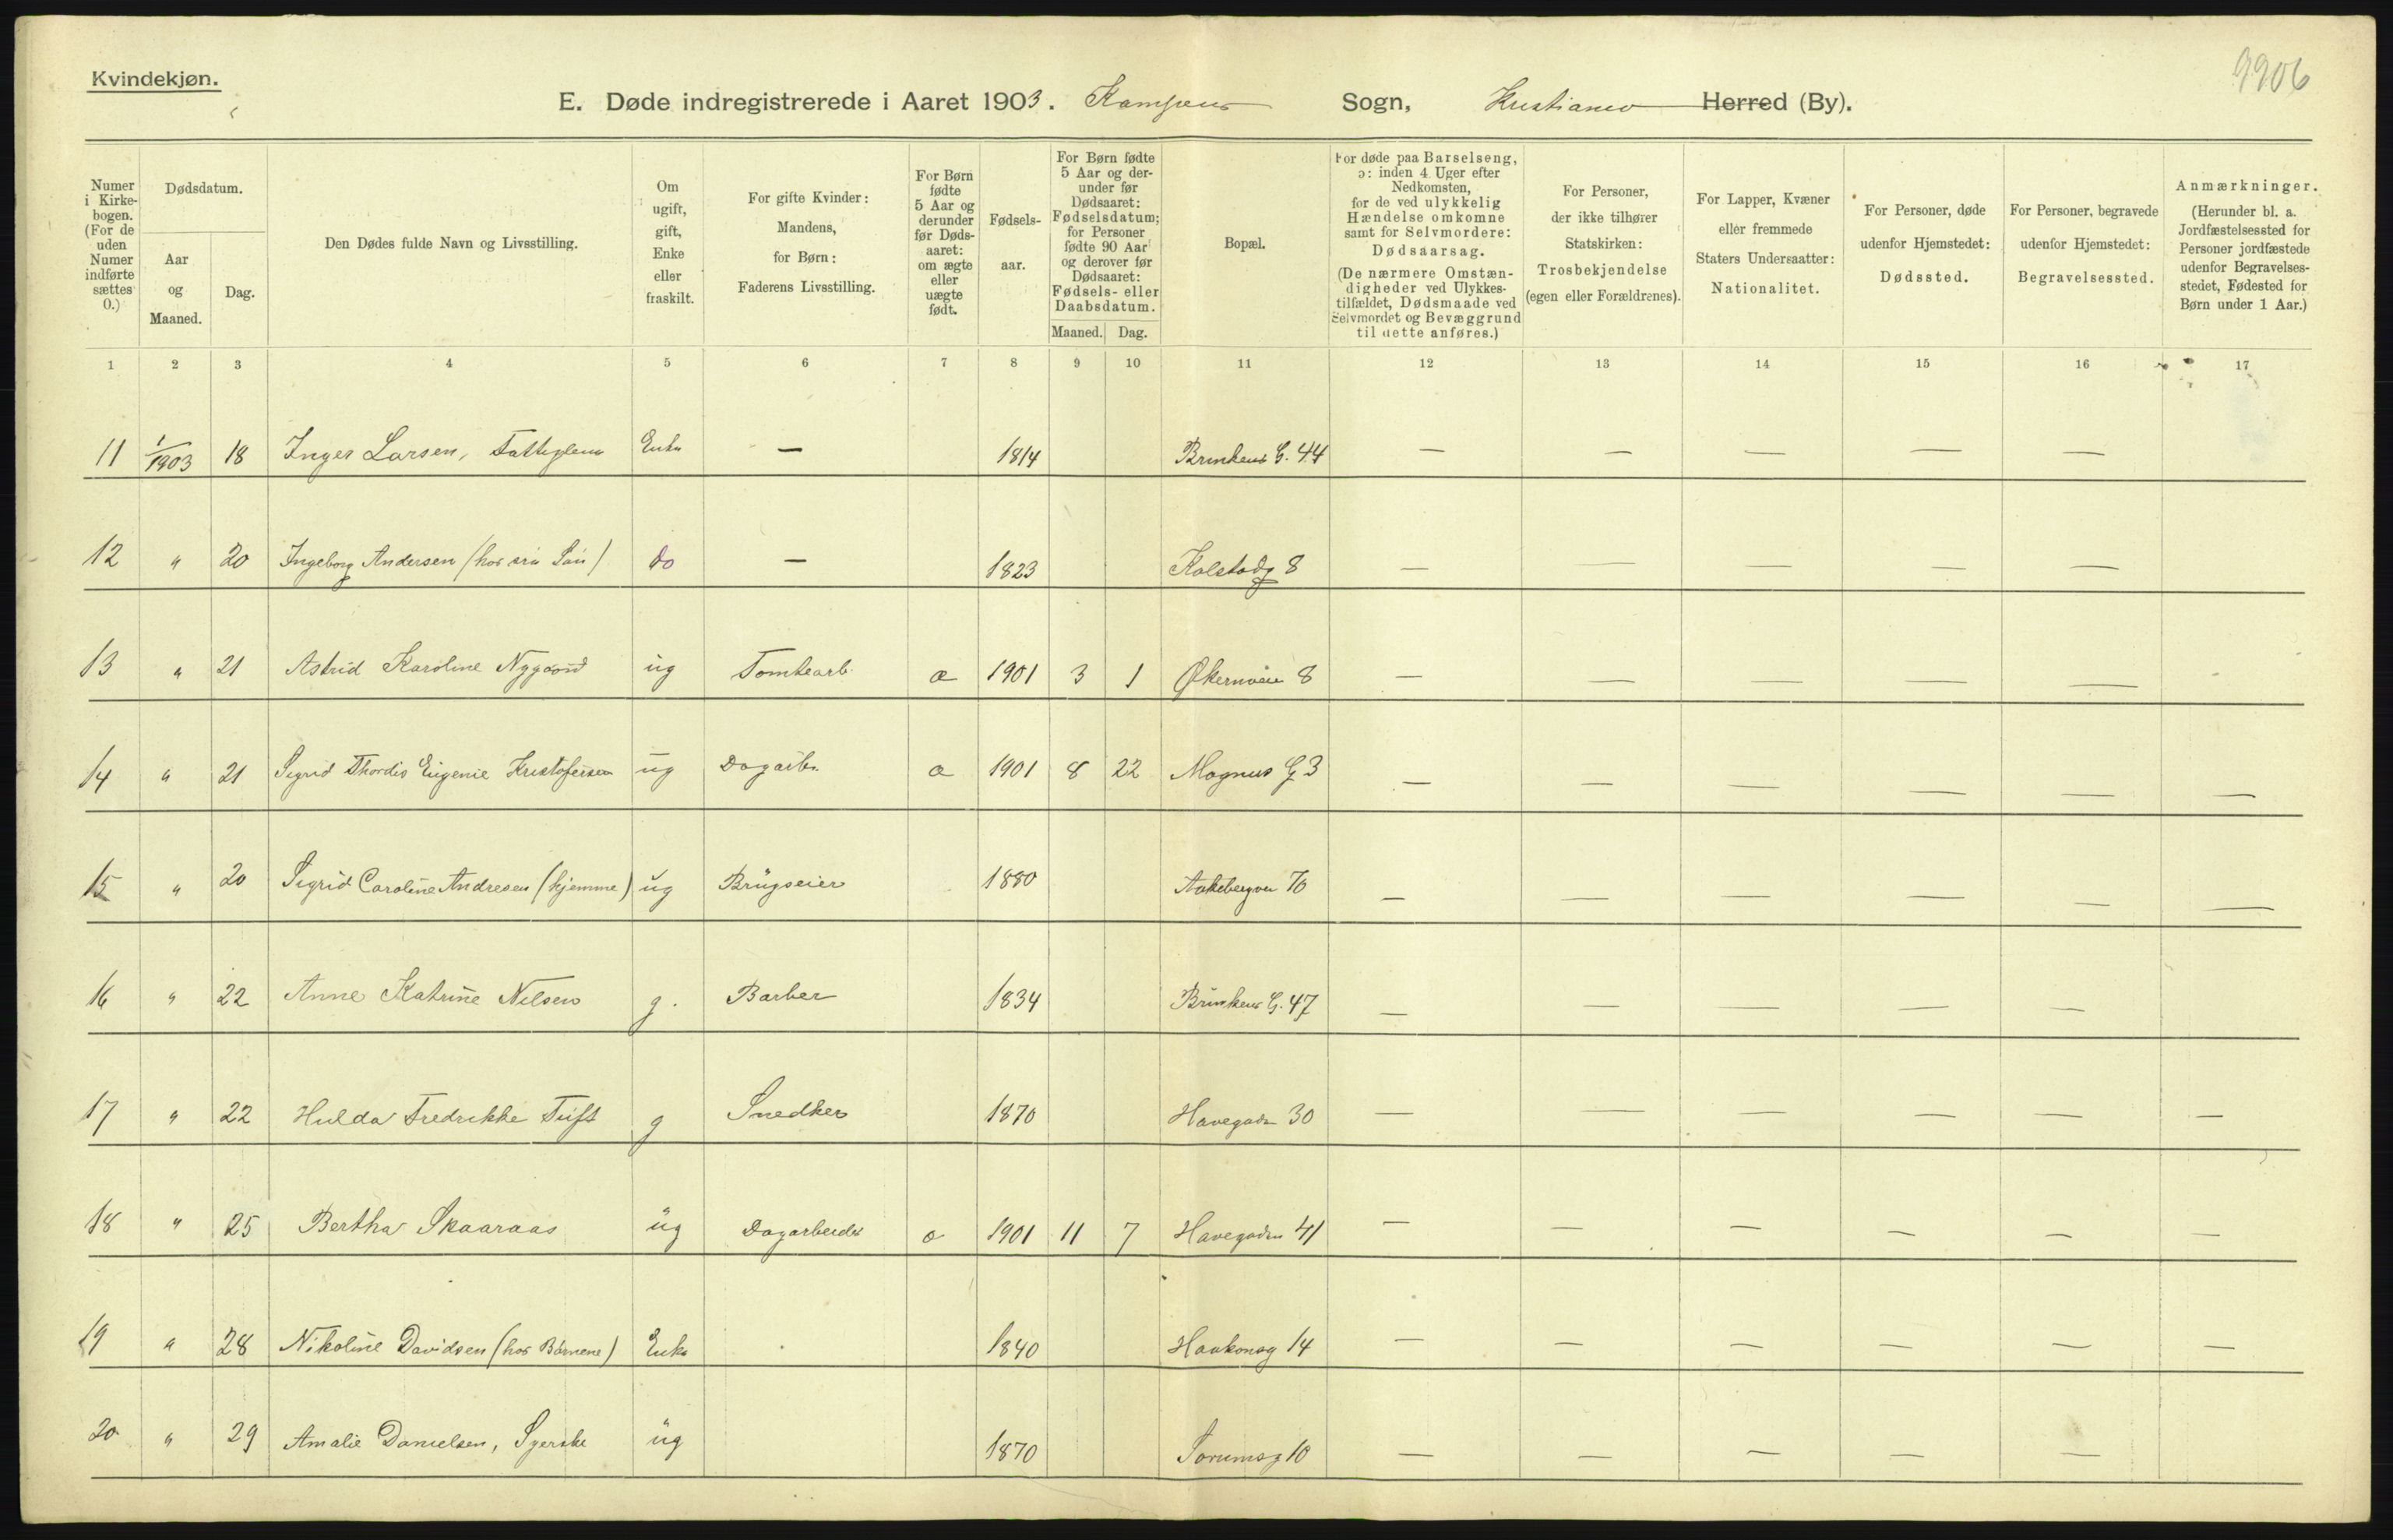 Kvindekjøn.
E. Døde indregistrerede i Aaret 1903. Kampens Sogn, Kristiania Herred (By).
Numer i Kirkebogen. (For de uden Numer indførte sættes 0.)
Dødsdatum.
Aar og Maaned.
Dag.
Den Dødes fulde Navn og Livsstilling.
Om ugift, gift, Enke eller fraskilt.
For gifte Kvinder: Mandens, for Børn: Faderens Livsstilling.
For Børn fødte 5 Aar og derunder før Dødsaaret: om ægte eller uægte født.
Fødselsaar.
For Børn fødte 5 Aar og derunder før Dødsaaret: Fødselsdatum; for Personer fødte 90 Aar og derover før Dødsaaret: Fødsels- eller Daabsdatum.
Maaned. Dag.
Bopæl.
For døde paa Barselseng, ɔ: inden 4 Uger efter Nedkomsten, for de ved ulykkelig Hændelse omkomne samt for Selvmordere: Dødsaarsag. (De nærmere Omstændigheder ved Ulykkestilfældet, Dødsmaade ved Selvmordet og Bevæggrund til dette anføres.)
For Personer, der ikke tilhører Statskirken: Trosbekjendelse (egen eller Forældrenes).
For Lapper, Kvæner eller fremmede Staters Undersaatter: Nationalitet.
For Personer, døde udenfor Hjemstedet: Dødssted.
For Personer, begravede udenfor Hjemstedet: Begravelsessted.
Anmærkninger. (Herunder bl. a. Jordfæstelsessted for Personer jordfæstede udenfor Begravelsesstedet, Fødested for Børn under 1 Aar.)
1 2 3 4 5 6 7 8 9 10 11 12 13 14 15 16 17
11 1/1903 18 Inger Larsen, Enke — 1814 Brinkens G. 44 — — — — —
12 " 20 Ingeborg Andersen (hos sin Søn) do — 1823 Kolstadg 8 — — — — —
13 " 21 Astrid Karoline Nygaard ug Tomtearb. æ 1901 3 1 Økernveie 8 — — — — —
14 " 21 Sigrid Thordis Eugenie Kristofersen ug Dagarb. æ 1901 8 22 Magnus G 3 — — — — — —
15 " 20 Sigrid Caroline Andresen (hjemme) ug Brugseier 1880 Aakebergvei 70 — — — — — —
16 " 22 Anne Katrine Nilsen g. Barber 1834 Brinkens G. 47 — — — — —
17 " 22 Hulda Fredrikke Tuft g Snedker 1870 Havegaden 30 — — — — — —
18 " 25 Bertha Skaaraas ug Dagarbeider æ 1901 11 7 Havegaden 41 — — — — — —
19 " 28 Nikoline Davidsen (hos Børnene) Enke 1840 Haakonsg 14 — — — — — —
20 " 29 Amalie Danielsen, Syerske ug 1870 Sørumsg 10 — — — — —